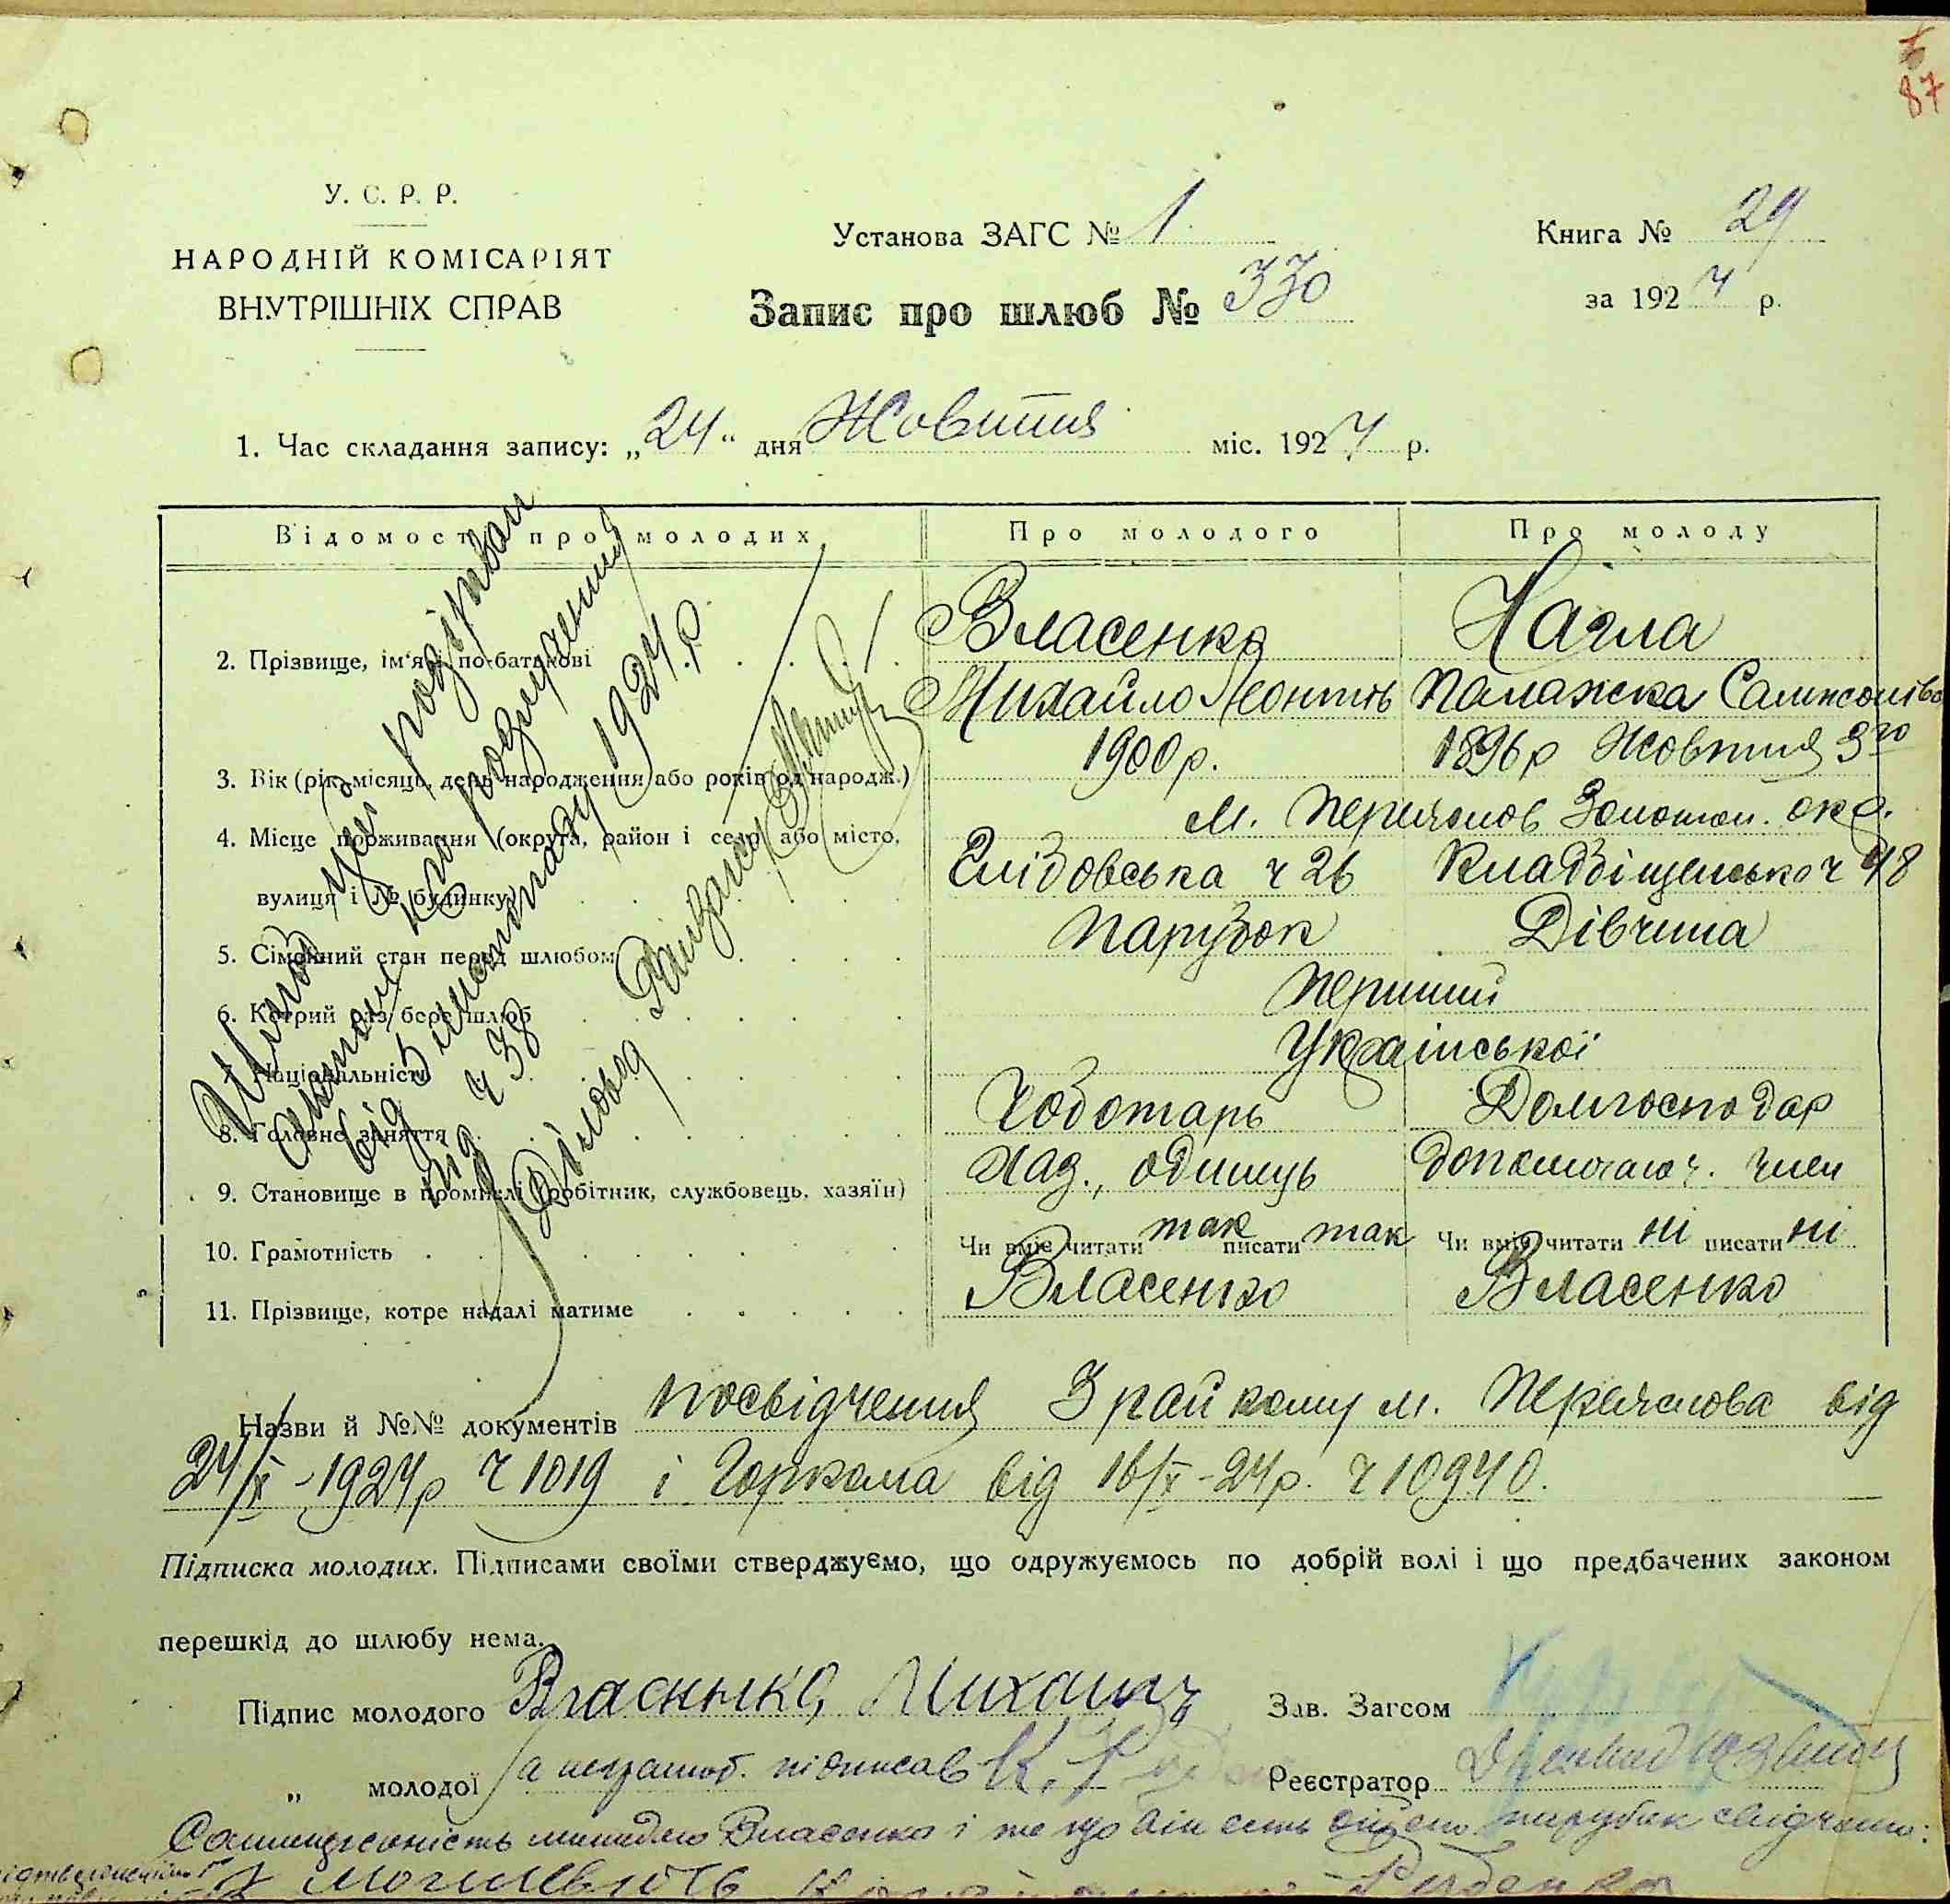 87
У. С. Р. Р.
НАРОДНІЙ КОМІСАРІЯТ
ВНУТРІШНІХ СПРАВ
Установа ЗАГС № 1
Книга № 24
Запис про шлюб № 330
за 1924 р.
1. Час складання запису: „24“ дня Жовтня міс. 1924 р.
Відомості про молодих
Про молодого
Про молоду
2. Прізвище, ім'я і по-батькові
Власенко
Нагла
Михайло Леонтів
Палажска
3. Вік (рік, місяць, день народження або років од народж.)
1900 р.
1896 р Жовтня
4. Місце проживання (округа, район і село або місто,
м. Переяслов Золотон. окр.
вулиця і № будинку)
ч 26
ч 48
5. Сімейний стан перед шлюбом
Парубок
Дівчина
6. Котрий раз бере шлюб
Перший
7. Національність
Української
8. Головне заняття
Чоботарь
Домгосподар
9. Становище в промислі (робітник, службовець, хазяїн)
Хаз., одинць
допомогаюч. член
10. Грамотність
Чи вміє читати так писати так
Чи вміє читати ні писати ні
11. Прізвище, котре надалі матиме
Власенко
Власенко
Шлюб цей розірван
від 5 листопаду 1924 р
ч 38
Діловод
Назви й №№ документів посвідчення З райкому м. Переяслова від
24/X - 1924 р ч 1019 і Горкома від 16/X - 24 р. ч 10940.
Підписка молодих. Підписами своїми стверджуємо, що одружуємось по добрій волі і що предбачених законом
перешкід до шлюбу нема.
Підпис молодого Михаил
Зав. Загсом
„ молодої за неграмот. підписав К.
Реєстратор
Власенко і те що він есть парубок свідчать: